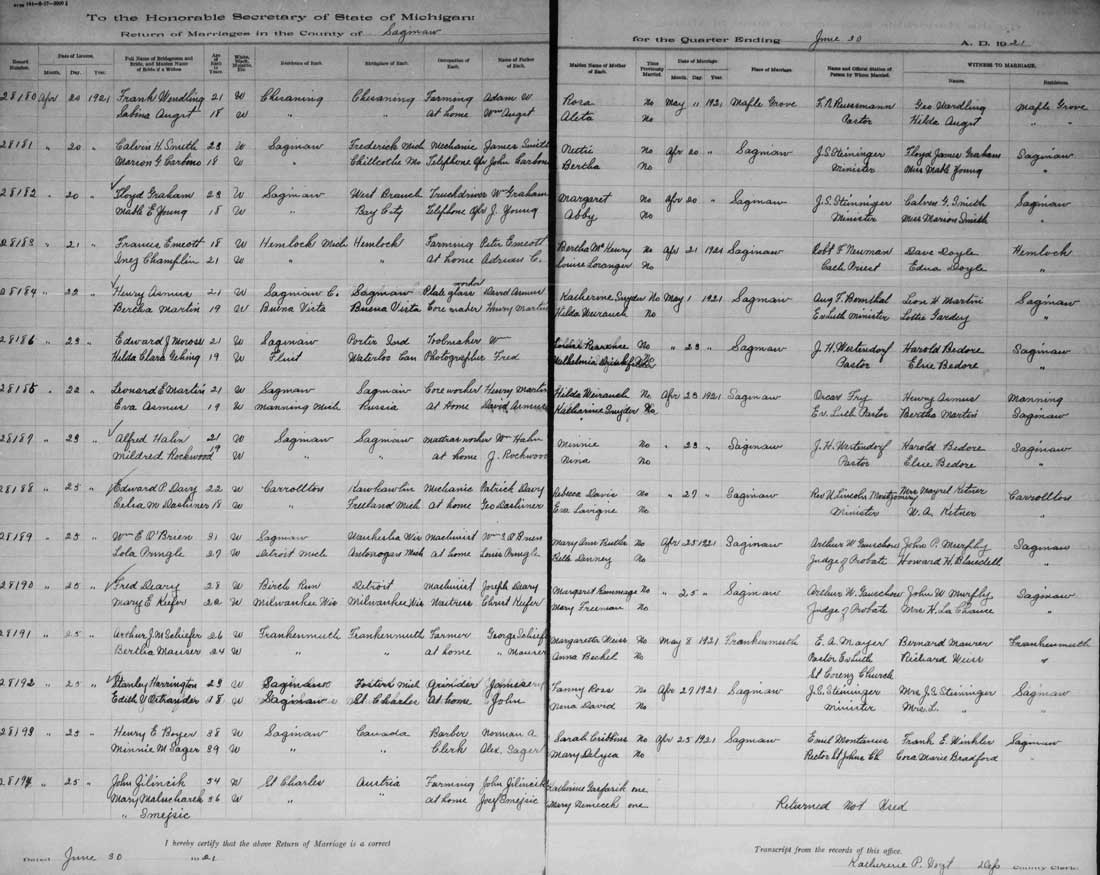 To the Honorable Secretary of State of Michigan:
Return of Marriages in the County of Saginaw for the Quarter Ending June 30 A. D. 1921
Record Number. Date of License. Month. Day. Year. Full Name of Bridegroom and Bride, and Maiden Name of Bride if a Widow Age of Each in Years White, Black, Mulatto, Etc. Residence of Each. Birthplace of Each. Occupation of Each. Name of Father of Each. Maiden Name of Mother of Each. Times Previously Married. Date of Marriage. Month. Day. Year. Place of Marriage. Name and Official Station of Person by Whom Married. WITNESS TO MARRIAGE. Names. Residence.
28180 Apr 20 1921 Frank Wendling 21 W Chesaning Chesaning Farming Adam W Rosa No May 11 1921 Maple Grove Geo Wardling Maple Grove
Sabina Augst 18 W " " at home Wm Augst Aleta No Pastor Hilda Augst " "
28181 " 20 " Calvin H. Smith 23 W Saginaw Frederick Mich Mechanic James Smith Nettie No Apr 20 " Saginaw J.S. Steininger Floyd James Graham Saginaw
Marion G. Carbono 18 W " Chillicothe Mo Telephone Opr John Carbono Bertha No Minister Miss Mable Young "
28182 " 20 " Floyd Graham 23 W Saginaw West Branch Truckdriver W Graham Margaret No Apr 20 " Saginaw J.S. Steininger Calvin G. Smith Saginaw
Mable E Young 18 W " Bay City Telephone Opr J. Young Abby No Minister Miss Marion Smith "
28183 " 21 " Francis Emcott 18 W Hemlock Mich Hemlock Farming Peter Emcott Bertha McHenry No Apr 21 1921 Saginaw Robt F Newman Dave Doyle Hemlock
Inez Champlin 21 W " " at home Adrian C. Louise Loranger No Cath Priest Edna Doyle "
28184 " 22 " Henry Asmus 21 W Saginaw C. Saginaw Plate glass worker David Asmus Katherine Snyder No May 1 1921 Saginaw Aug F. Bernthal Leon H Martin Saginaw
Bertha Martin 19 W Buena Vista Buena Vista Core maker Henry Martin Hilda Weirauch No Ev Luth Minister Lottie Gardey "
28186 " 23 " Edward J Morose 21 W Saginaw Porter Ind Toolmaker Wm No " 23 " Saginaw J.H. Westendorf Harold Bedore Saginaw
Hilda Clara Gehing 19 W Flint Waterloo Can Photographer Fred Pastor Elsie Bedore "
28185 " 22 " Leonard E Martin 21 W Saginaw Saginaw Core worker Henry Martin Hilda Weirauch No Apr 23 1921 Saginaw Oscar Fry Henry Asmus Manning
Eva Asmus 19 W Manning Mich Russia at Home David Asmus Katharine Snyder No Ev. Luth Pastor Bertha Martin Saginaw
28187 " 23 " Alfred Hahn 21 W Saginaw Saginaw Mattras worker Wm Hahn Minnie No " 23 " Saginaw J.H. Westendorf Harold Bedore Saginaw
Mildred Rockwood 19 W " " at home J. Rockwood Nina No Pastor Elsie Bedore "
28188 " 25 " Edward P. Davy 22 W Carrollton Kawkawlin Mechanic Patrick Davy Rebecca Davis No " 27 " Saginaw Rev U Lincoln Montgomery Mrs Mayrel Ketner Carrollton
Celia M Dashner 18 W " Freeland Mich at home Geo Dashner Eva Lavigne No Minister W. A. Ketner "
28189 " 25 " Wm E O'Brien 31 W Saginaw Waukesha Wis Machinist Wm O'Brien Mary Ann Butler No Apr 25 1921 Saginaw Arthur W Ganschow John P. Murphy Saginaw
Lola Pringle 27 W Detroit Mich Ontonogon Mich at home Louis Pringle Beth Denney No Judge of Probate Howard H. Blaisdell "
28190 " 25 " Fred Deary 28 W Birch Run Detroit Machinist Joseph Deary Margaret Rummage No " 25 " Saginaw Arthur W. Ganschow John W Murphy Saginaw
Mary E Keifer 22 W Milwaukee Wis Milwaukee Wis Waitress Christ Keifer Mary Freeman No Judge of Probate Mrs H. La Chance "
28191 " 25 " Arthur J.M Schiefer 26 W Frankenmuth Frankenmuth Farmer George Schiefer Margaretta Weiss No May 8 1921 Frankenmuth E. A. Mayer Bernard Maurer Frankenmuth
Bertha Mauser 24 W " " at home " Mauser Anna Bechel No Pastor Ev Luth Richard Weiss "
St Lorenz Church
28192 " 25 " Stanley Harrington 23 W Saginaw Foster Mich Grinder James Fanny Ross No Apr 27 1921 Saginaw J.S. Steininger Mrs J.S Steininger Saginaw
Edith V Ostrander 18 W Saginaw St Charles At home John Nena David No Minister Mrs L. " "
28193 " 25 " Henry E Boyer 38 W Saginaw Canada Barber Norman A Sarah Cribbins No Apr 25 1921 Saginaw Emil Montanus Frank E Winkler Saginaw
Minnie M Sager 39 W " " Clerk Alex. Sager Mary Delyea No Rector St Johns Ch Cora Marie Bradford "
28194 " 25 " John Jilincik 34 W St Charles Austria Farming John Jilincik Katherine Gasparik one
Mary Matucharek 36 W " " at home Josef Smejsic Mary Nemecek one Returned Not Used
" Smejsic
I hereby certify that the above Return of Marriage is a correct Transcript from the records of this office.
Dated June 30 1921 Katherine P. Voyt Dep County Clerk.